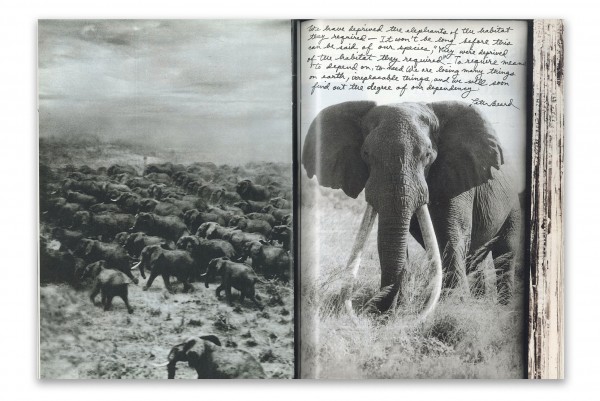 We have deprived the elephants of the habitat
they required — It won't be long before this
can be said of our species, "They were deprived
of the habitat they required." To require means
to depend on, to need. We are losing many things
on earth, irreplaceable things, and we will soon
find out the degree of our dependency
Peter Beard